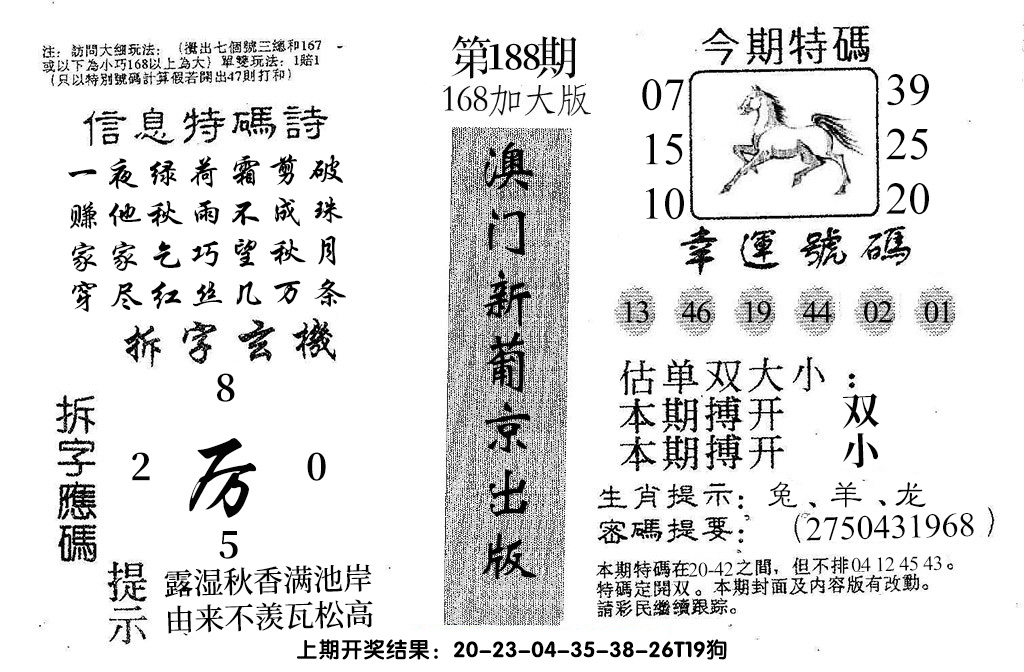 注：訪問大細玩法：（攪出七個號三總和167
或以下為小巧168以上為大）單雙玩法：1賠1
（只以特別號碼計算假若開出47則打和）
信息特碼詩
一夜绿荷霜剪破
赚他秋雨不成珠
家家乞巧望秋月
穿尽红丝几万条
拆字玄機
8
2 厉 0
5
拆字應碼
提示
露湿秋香满池岸
由来不羡瓦松高
第188期
168加大版
澳门新葡京出版
今期特碼
07 39
15 25
10 20
幸運號碼
13 46 19 44 02 01
估单双大小：
本期搏开 双
本期搏开 小
生肖提示：兔、羊、龙
密碼提要：（2750431968）
本期特碼在20-42之間，但不排04 12 45 43。
特碼定開双。本期封面及内容版有改動。
請彩民繼續跟踪。
上期开奖结果：20-23-04-35-38-26T19狗